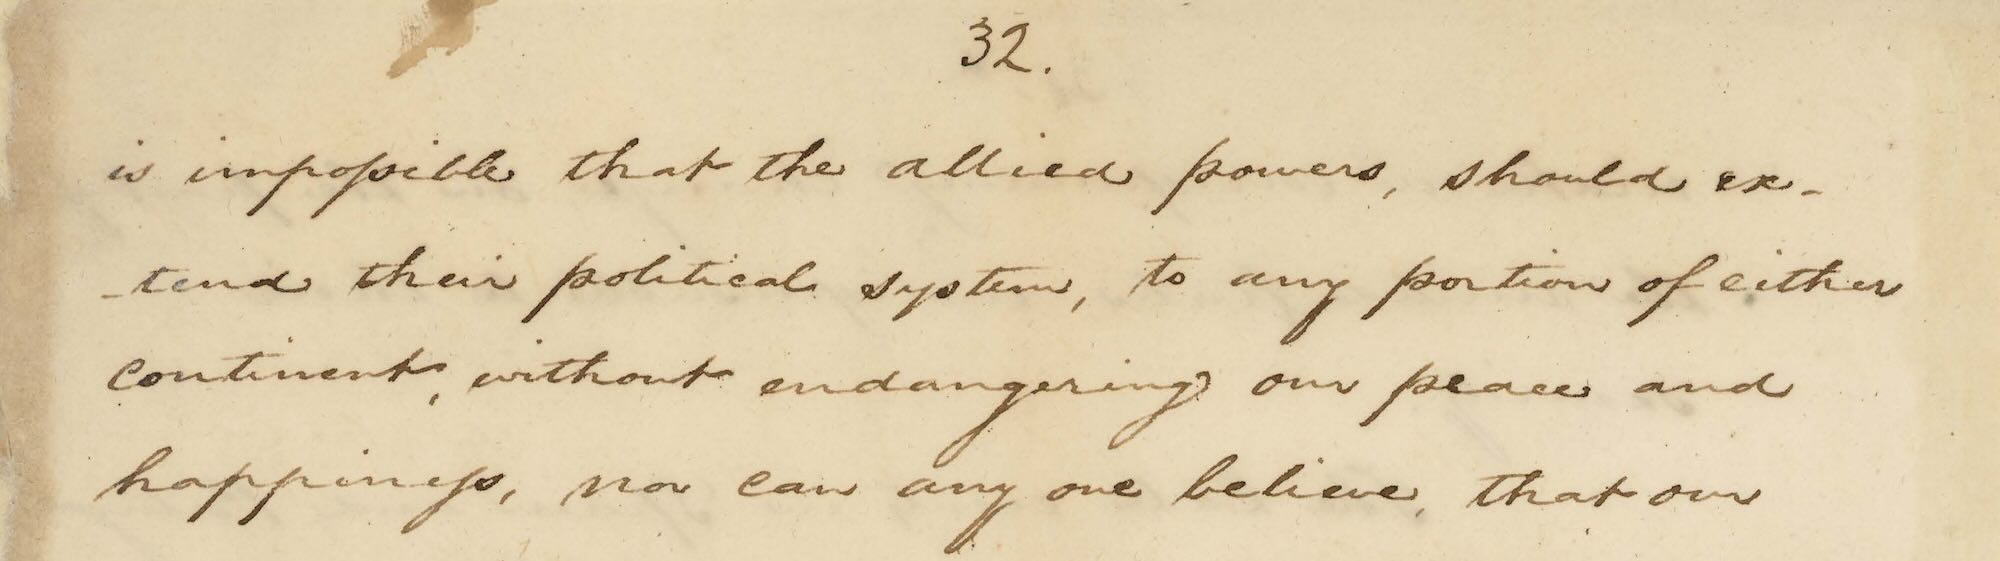 32.
is impossible that the allied powers, should ex-
-tend their political system, to any portion of either
continent, without endangering our peace and
happiness, nor can any one believe, that our